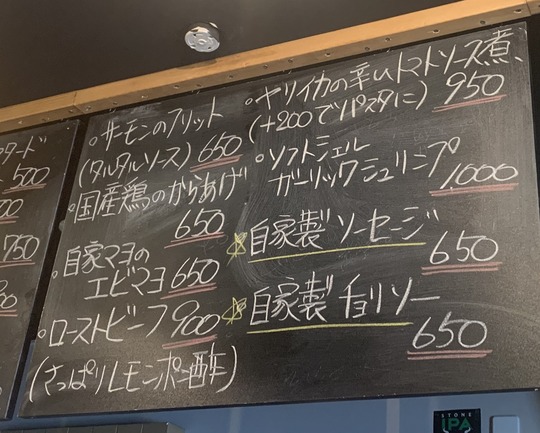 タード
500
00
750
00
・サーモンのフリット
(タルタルソース) 650
・国産鶏のからあげ
650
・自家マヨの
エビマヨ 650
・ローストビーフ 900
(さっぱりレモンポン酢)
・ヤリイカの辛いトマトソース煮、
(+200でパスタに) 950
・ソフトシェル
ガーリックシュリンプ
1,000
☆自家製 ソーセージ
650
☆自家製 チョリソー
650
STONE
IPA